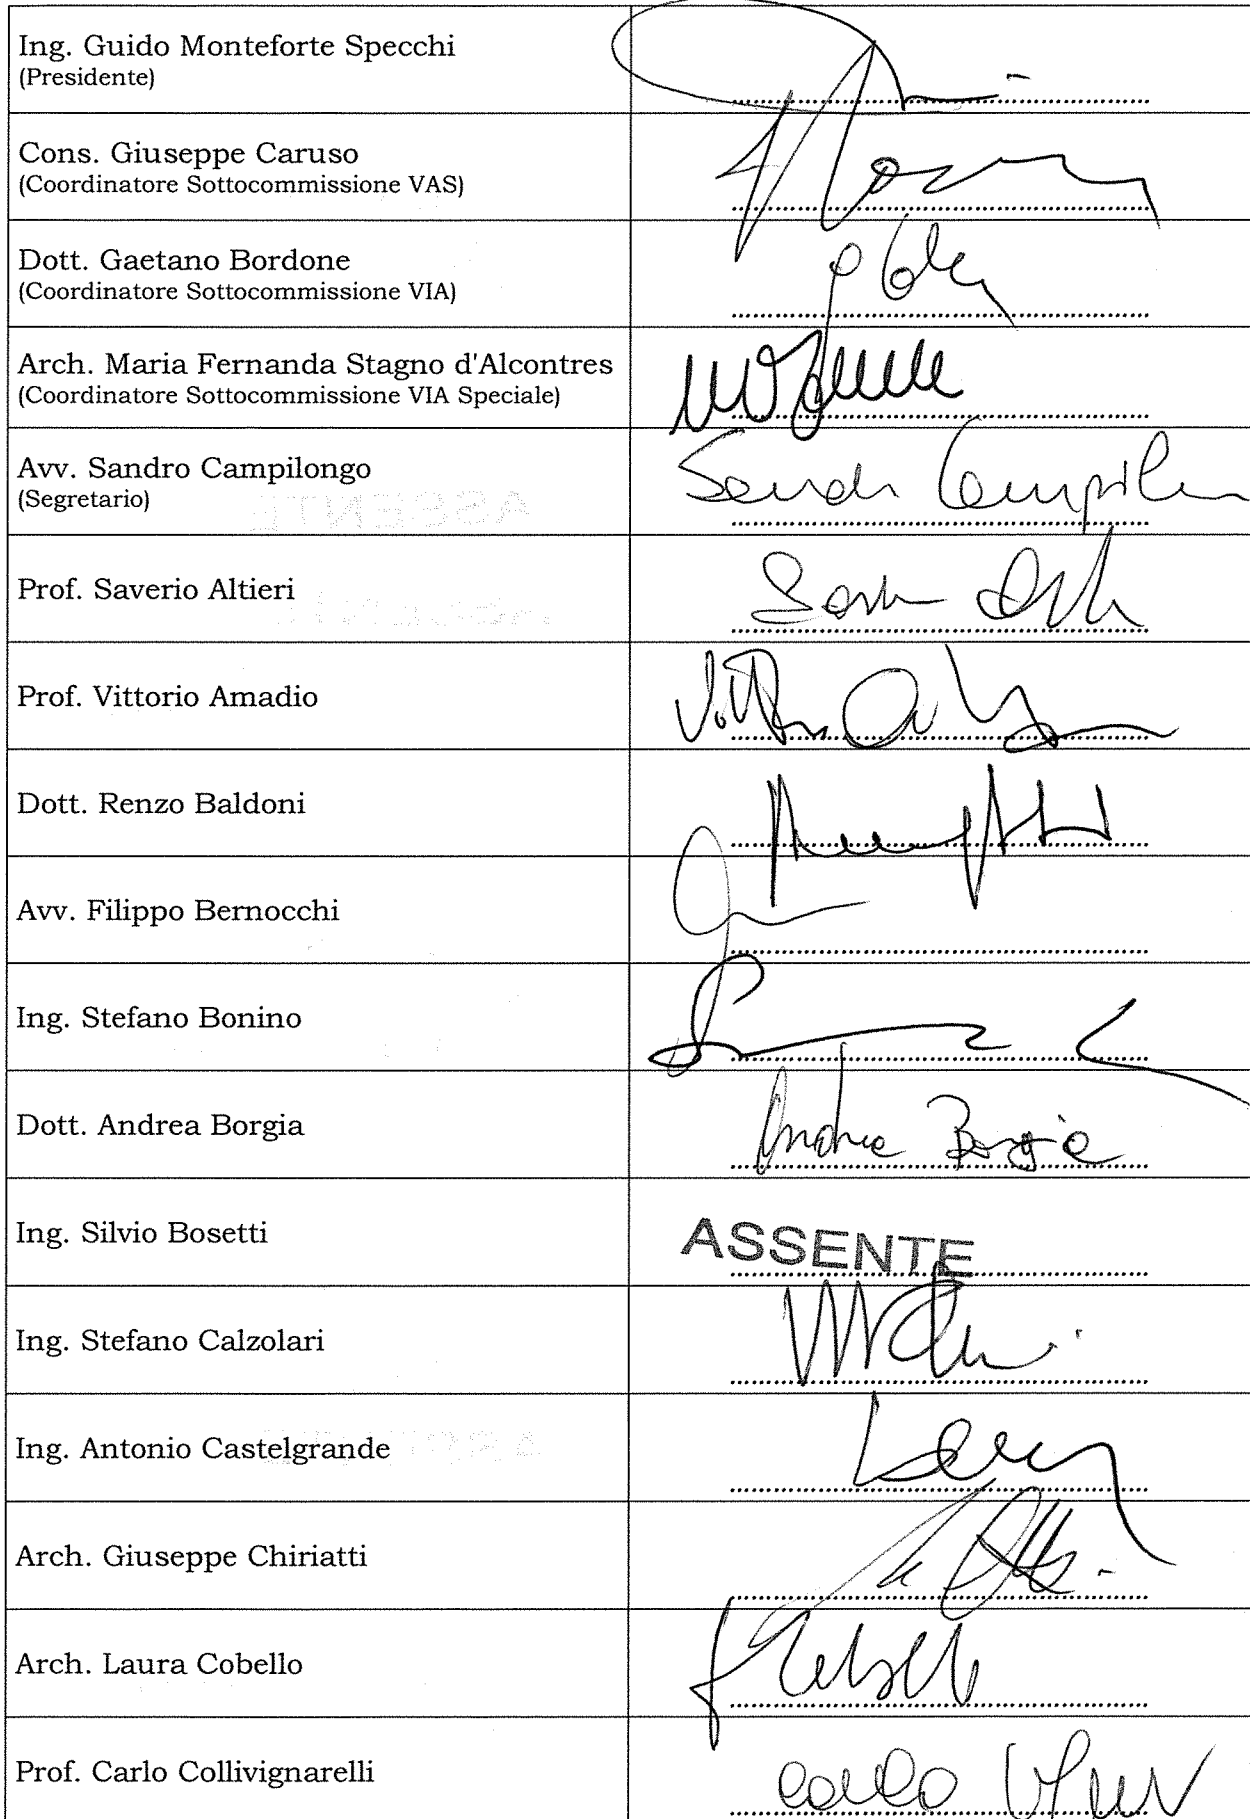 Ing. Guido Monteforte Specchi
(Presidente)
Cons. Giuseppe Caruso
(Coordinatore Sottocommissione VAS)
Dott. Gaetano Bordone
(Coordinatore Sottocommissione VIA)
Arch. Maria Fernanda Stagno d'Alcontres
(Coordinatore Sottocommissione VIA Speciale)
Avv. Sandro Campilongo
(Segretario)
Prof. Saverio Altieri
Prof. Vittorio Amadio
Dott. Renzo Baldoni
Avv. Filippo Bernocchi
Ing. Stefano Bonino
Dott. Andrea Borgia
Andrea Borgia
Ing. Silvio Bosetti
ASSENTE
Ing. Stefano Calzolari
Ing. Antonio Castelgrande
Arch. Giuseppe Chiriatti
Arch. Laura Cobello
Prof. Carlo Collivignarelli
Carlo